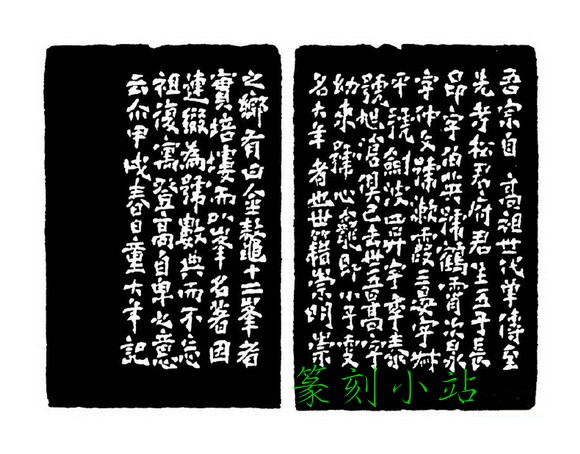 吾宗自高祖世代單傳至
先考松君府君生五子長
昂字伯英號鶴霄次泉
字仲文號漱霞三晏字叔
平號劍波四昇字季泰
號旭滄俱已去世吾高字
幼來號心龕即小子變
名大年者也世籍崇明崇
之鄉有曰金鰲十二峯者
實培塿而以峯名著因
連綴為號數典而不忘
祖復寓登高自卑之意
云尒甲戌春日童大年記
篆刻小站